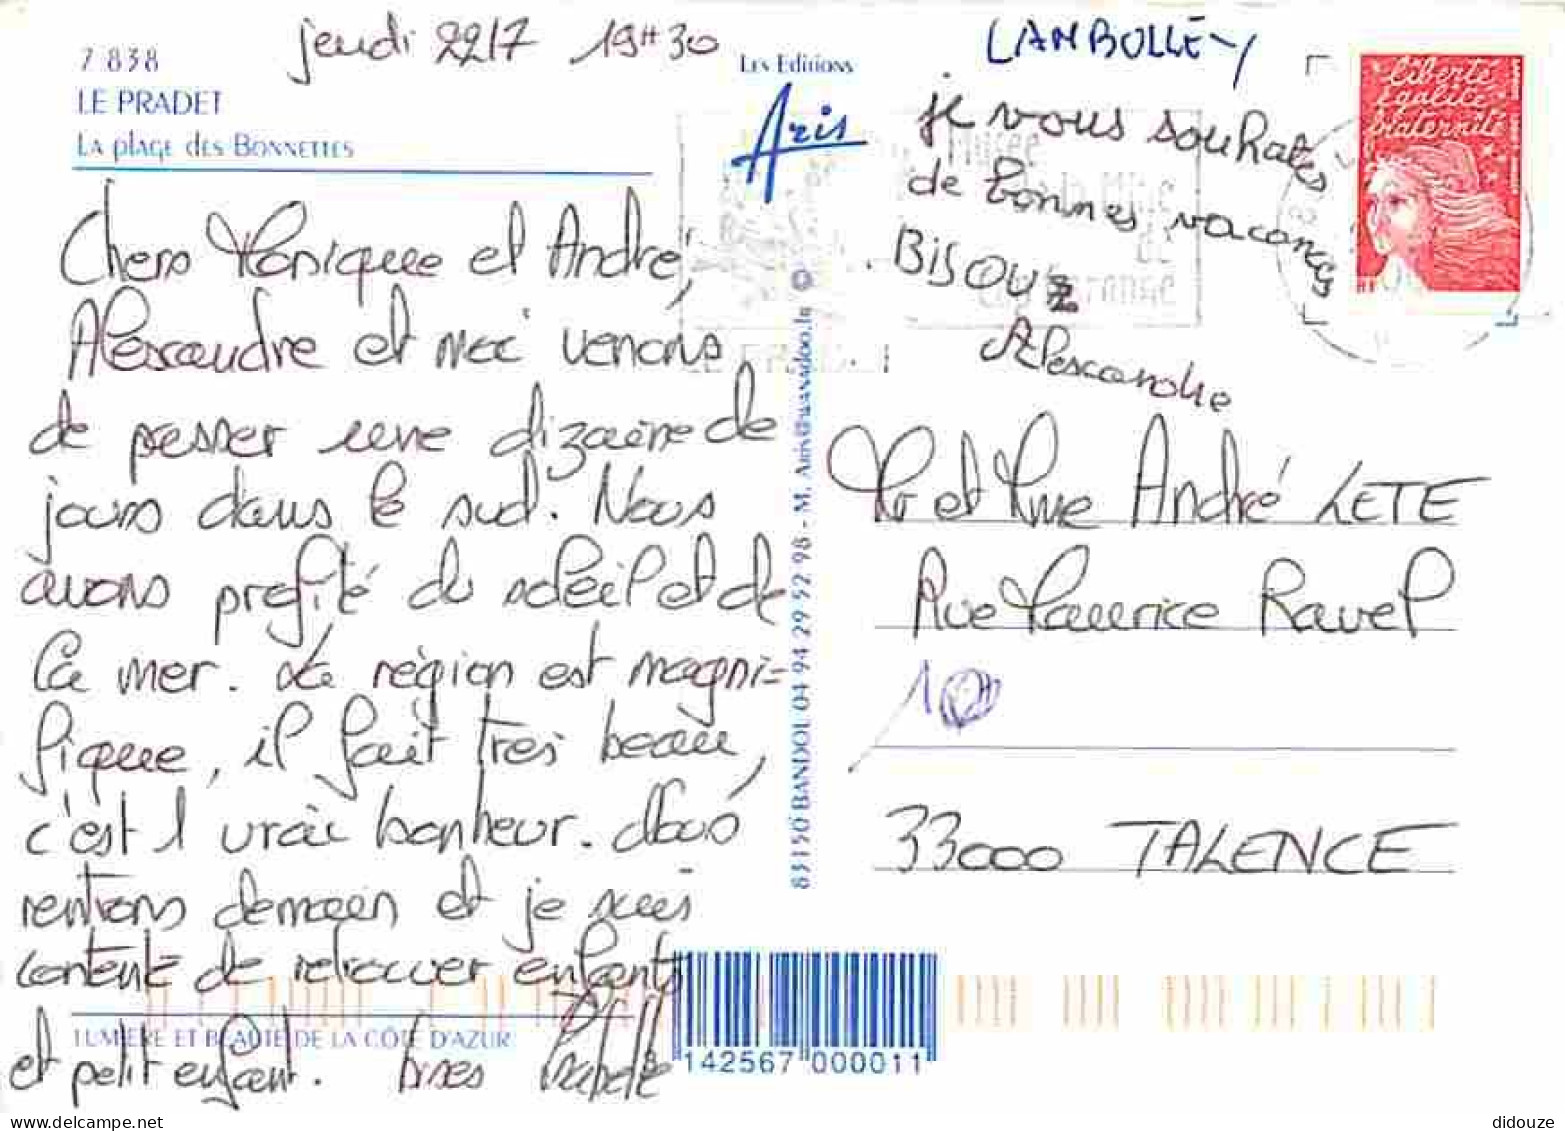 jeudi 22/7 19H30
7 838
LE PRADET
La plage des Bonnettes
Chers Monique et André,
Alexandre et moi venons
de passer une dizaine de
jours dans le sud. Nous
avons profité du soleil et de
la mer. La région est magni-
fique, il fait très beau,
c'est 1 vrai bonheur. Nous
rentrons demain et je suis
contente de retrouver enfants
et petit enfant. bises Isabelle
LUMIÈRE ET BEAUTÉ DE LA CÔTE D'AZUR
Les Editions
Aris
83150 BANDOL 04 94 29 52 98 - M. Aris@wanadoo.fr
LAMBOLLEY
je vous souhates
de bonnes vacances
BISOUZ
Alexandre
liberté
égalité
fraternité
RF
Musée
de la Mine
de
Cap Garonne
LE PRADET
Mr et Mme André LETE
Rue Maurice Ravel
33000 TALENCE
3 142567 000011
didouze